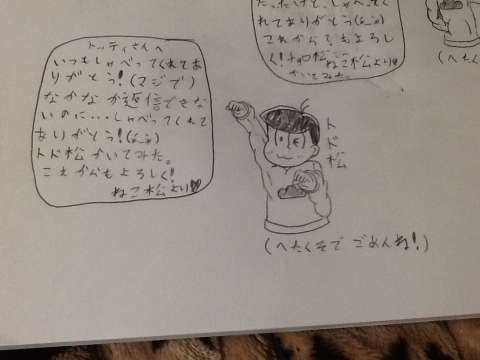 た。だけど、しゃべってく
れてありがとう(≧_≦)
これからもよろし
く！チョロ松
ねこ松より♥
かいてみた。
(へた
トッティさんへ
いつもしゃべってくれてあ
りがとう！(マジで)
なかなか返信できな
いのに…しゃべってくれて
ありがとう！(≧_≦)
トド松かいてみた。
これからもよろしく！
ねこ松より♥
トド松
(へたくそで ごめんね！)